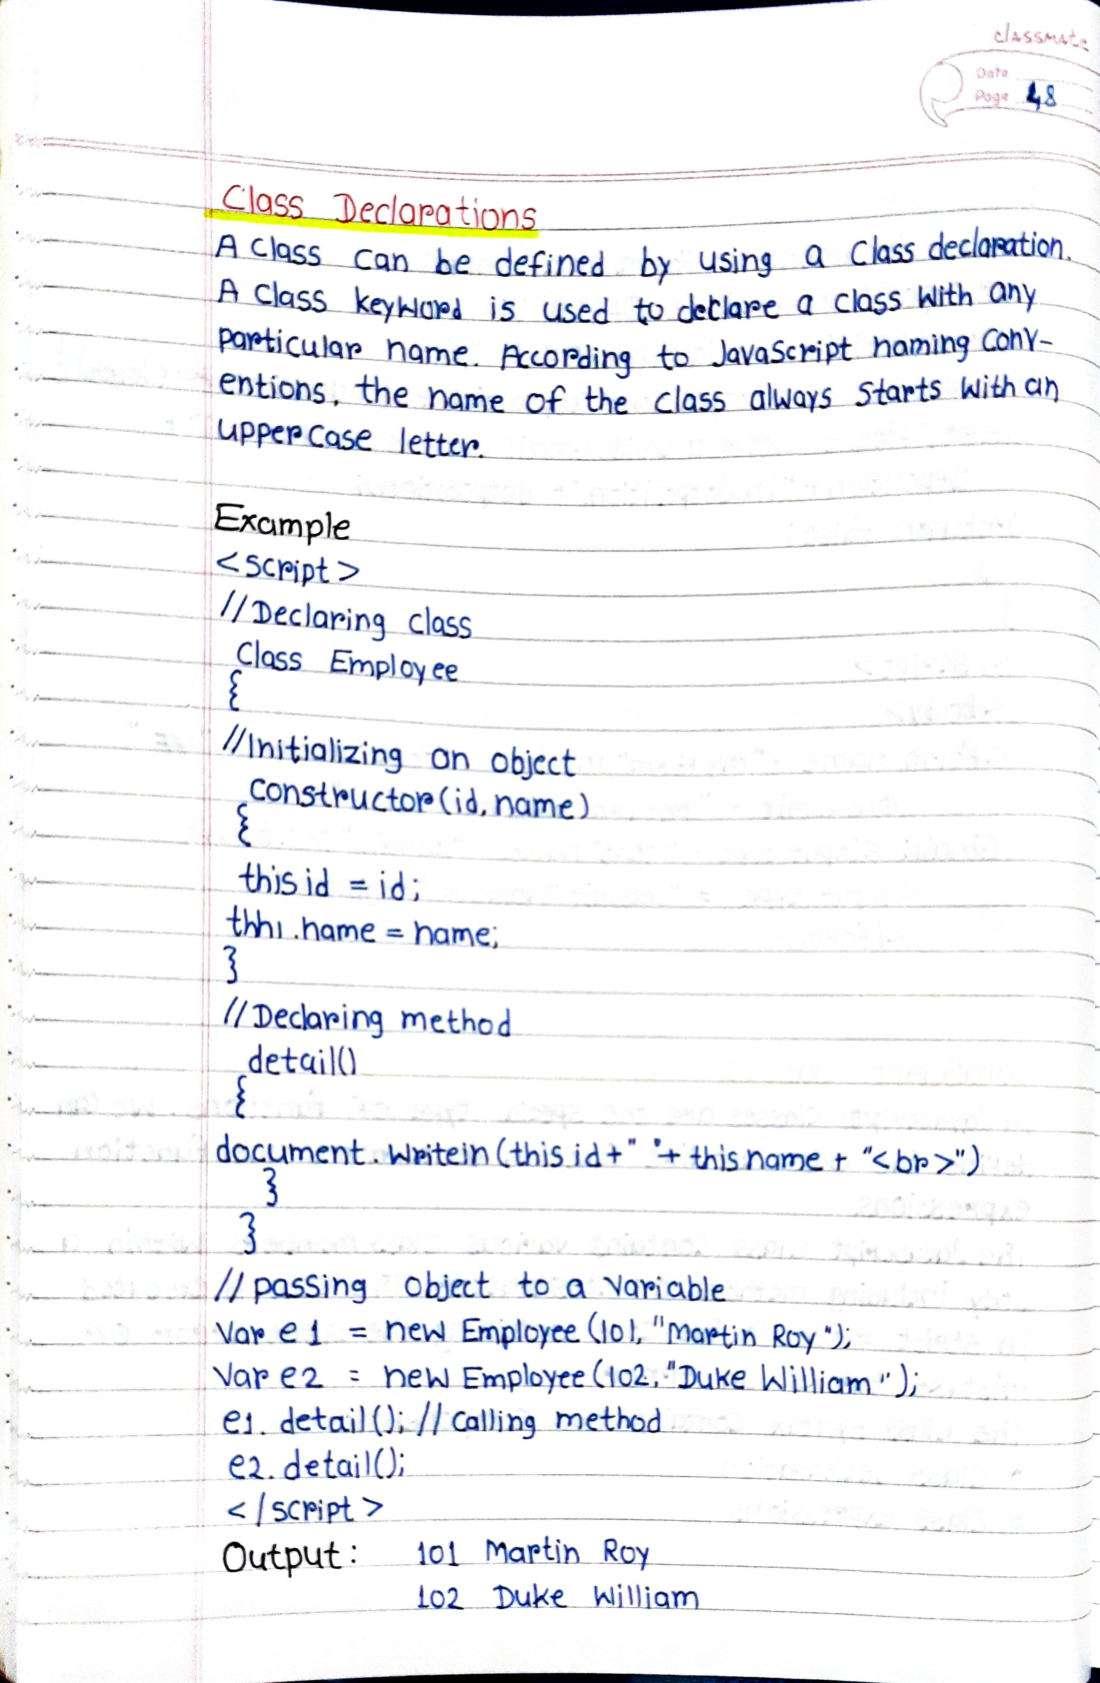 classmate
Date
Page 48
Class Declarations
A Class can be defined by using a Class declaration.
A class keyword is used to declare a class with any
particular name. According to JavaScript naming conv-
entions, the name of the class always starts with an
uppercase letter.
Example
<script>
//Declaring class
Class Employee
{
//Initializing an object
constructor(id, name)
{
this id = id;
thhi .name = name;
}
//Declaring method
detail()
{
document.writein(this id+" "+ this name + "<br>")
}
}
//passing object to a variable
Var e1 = new Employee (101, "Martin Roy");
Var e2 = new Employee (102, "Duke William");
e1. detail(); //calling method
e2. detail();
</script>
Output: 101 Martin Roy
102 Duke William